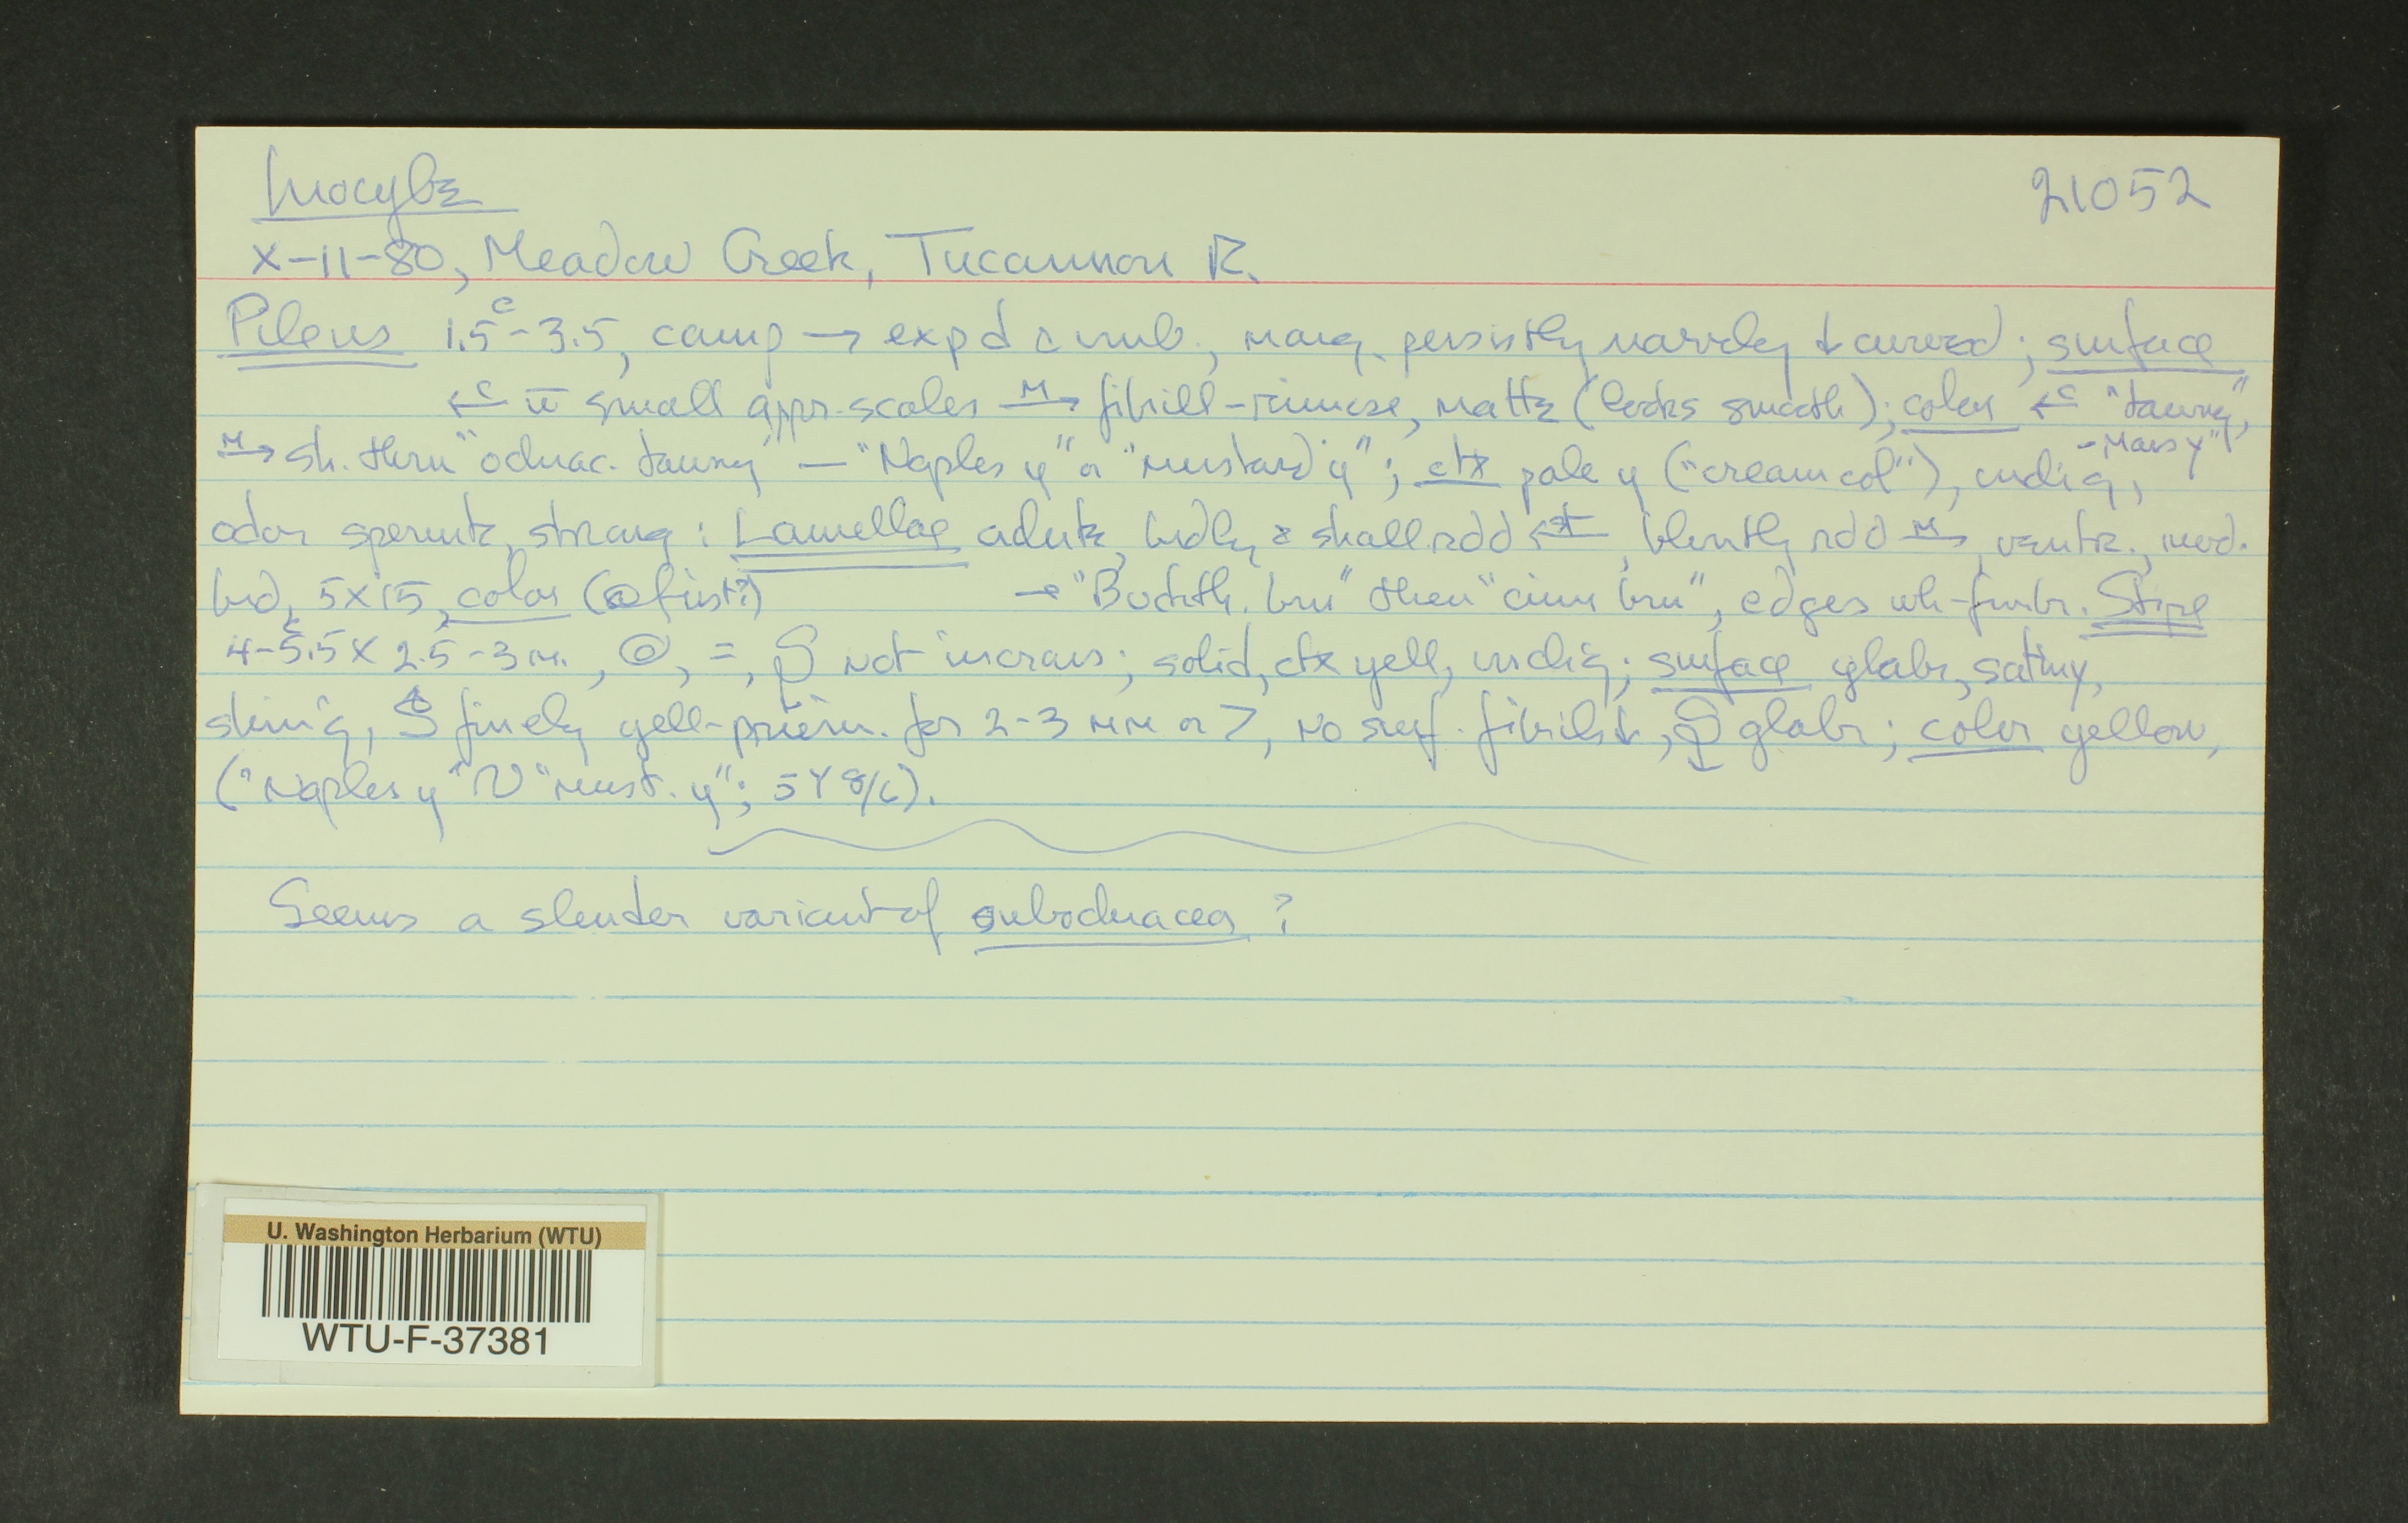 Inocybe
21052
X-11-80, Meadow Creek, Tucannon R.
Pileus 1.5-3.5, camp → expd c umb., marg. persistly narrowly ↓ curved; surface
←c w small appr. scales M→ fibrill-rimose, matte (looks smooth); color ←c "tawny",
-Mars y"
M→ sh. thru "ochrac. tawny" — "Naples y" or "mustard y"; ctx pale y ("cream col"), undig,
odor spermtc, strong: Lamellae adnte, brdly & shall. rdd ←st, bluntly rdd M→, ventr., mod.
brd, 5X15, color (@ first?) → "Buckth. brn" then "cinn brn", edges wh-fmbr. Stipe
4-5.5 X 2.5-3 m., ⊚, =, not incras; solid, ctx yell, undig; surface glabr, satiny,
shin'g, finely yell-pruin. for 2-3 mm or >, no surf. fibrils ↓, glabr; color yellow,
("Naples y" N "must. y"; 5Y 8/6).
Seems a slender variant of subochracea?
U. Washington Herbarium (WTU)
WTU-F-37381